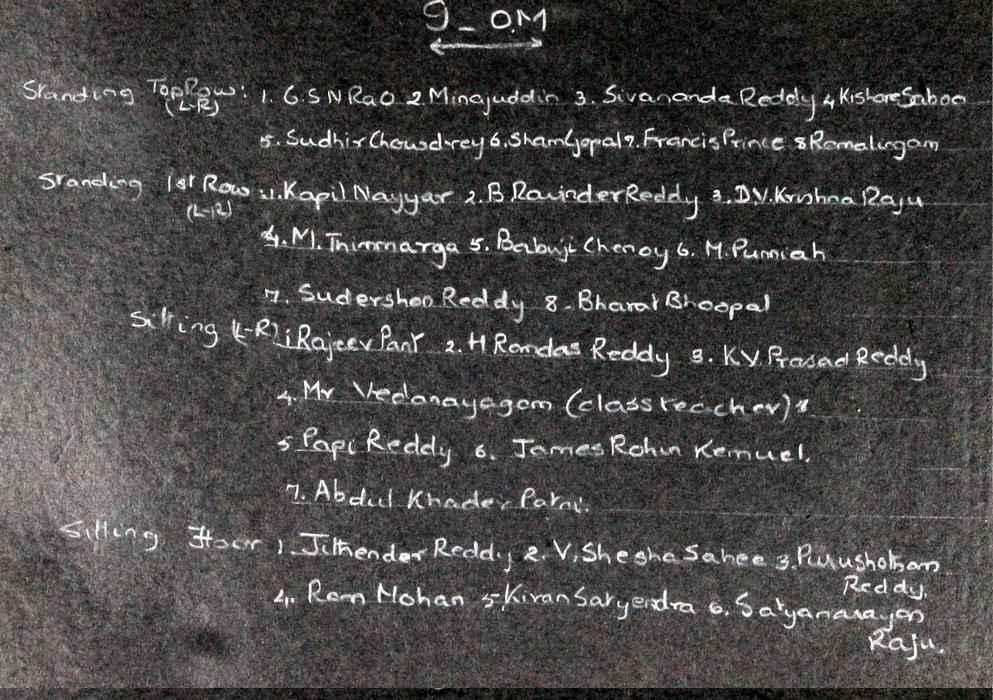 9_ O.M
Standing Top Row: 1. G.S N Rao 2 Minajuddin 3. Sivananda Reddy 4 Kishore Saboo
(L-R)
5. Sudhir Chowdrey 6. Sham Gopal 7. Francis Prince 8 Ramalingam
Standing 1st Row :1. Kapil Nayyar 2. B. Ravinder Reddy 3. D.V. Krishna Raju
(L-R)
4. M. Thimmarga 5. Berbuji Chenoy 6. M. Punniah
7. Sudershan Reddy 8. Bharat Bhoopal
Sitting (L-R) 1 Rajeev Pant 2. H Ramdas Reddy 3. K.V. Prasad Reddy
4. Mr Vedanayagam (class teacher)
5 Papi Reddy 6. James Rohin Kemuel.
7. Abdul Khader Patni.
Sitting Floor 1. Jithender Reddy 2. V. Shesha Sahee 3. Purushotham
Reddy.
4. Ram Mohan 5. Kiran Satyendra 6. Satyanarayan
Raju.